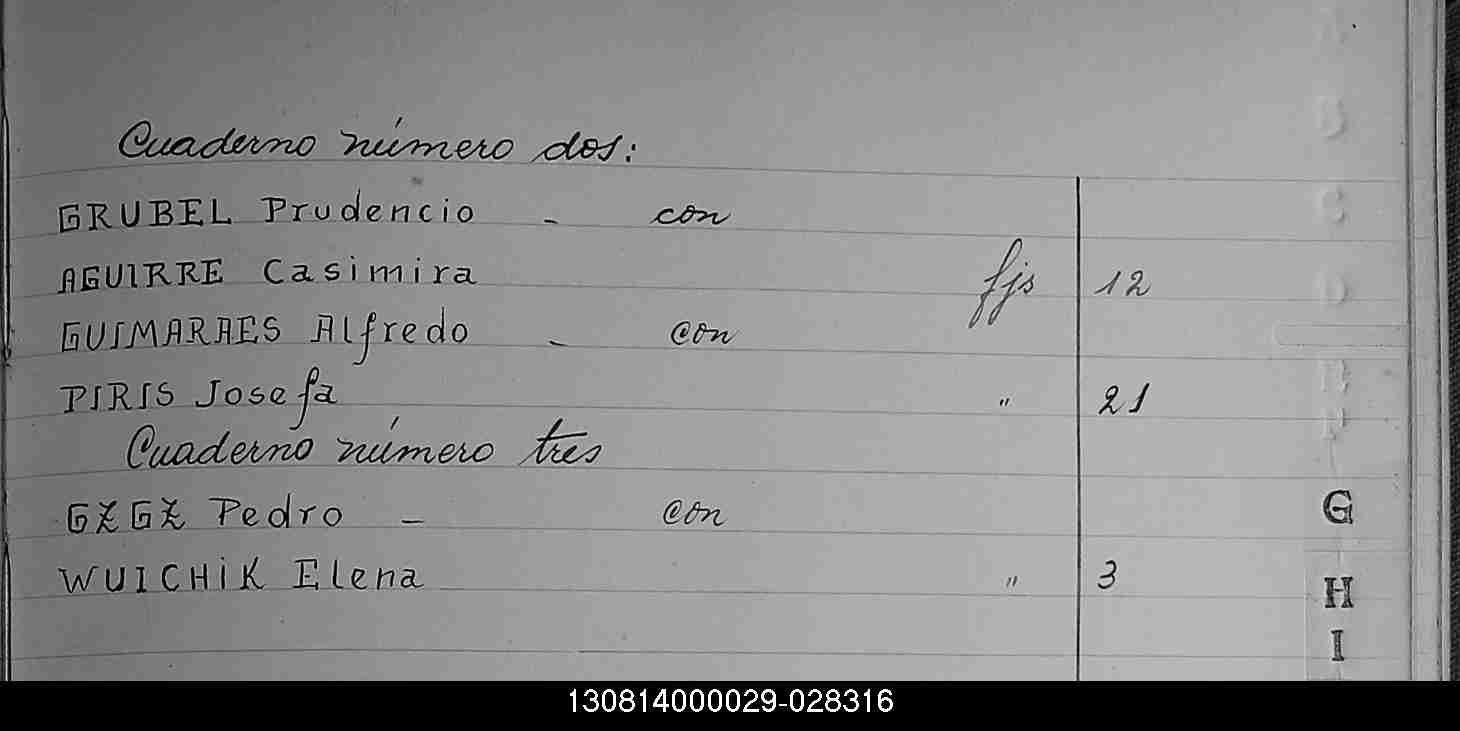 Cuaderno número dos:
GRUBEL Prudencio - con
AGUIRRE Casimira fjs 12
GUIMARAES Alfredo - con
PIRIS Josefa " 21
Cuaderno número tres
GZGZ Pedro - con
WUICHIK Elena " 3
G
H
I
130814000029-028316